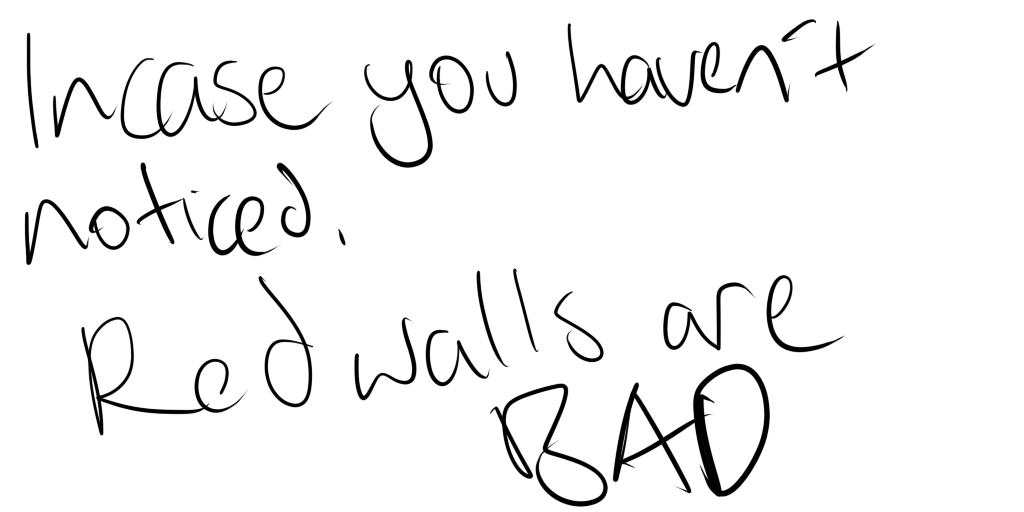 Incase you haven't
noticed.
Red walls are
BAD